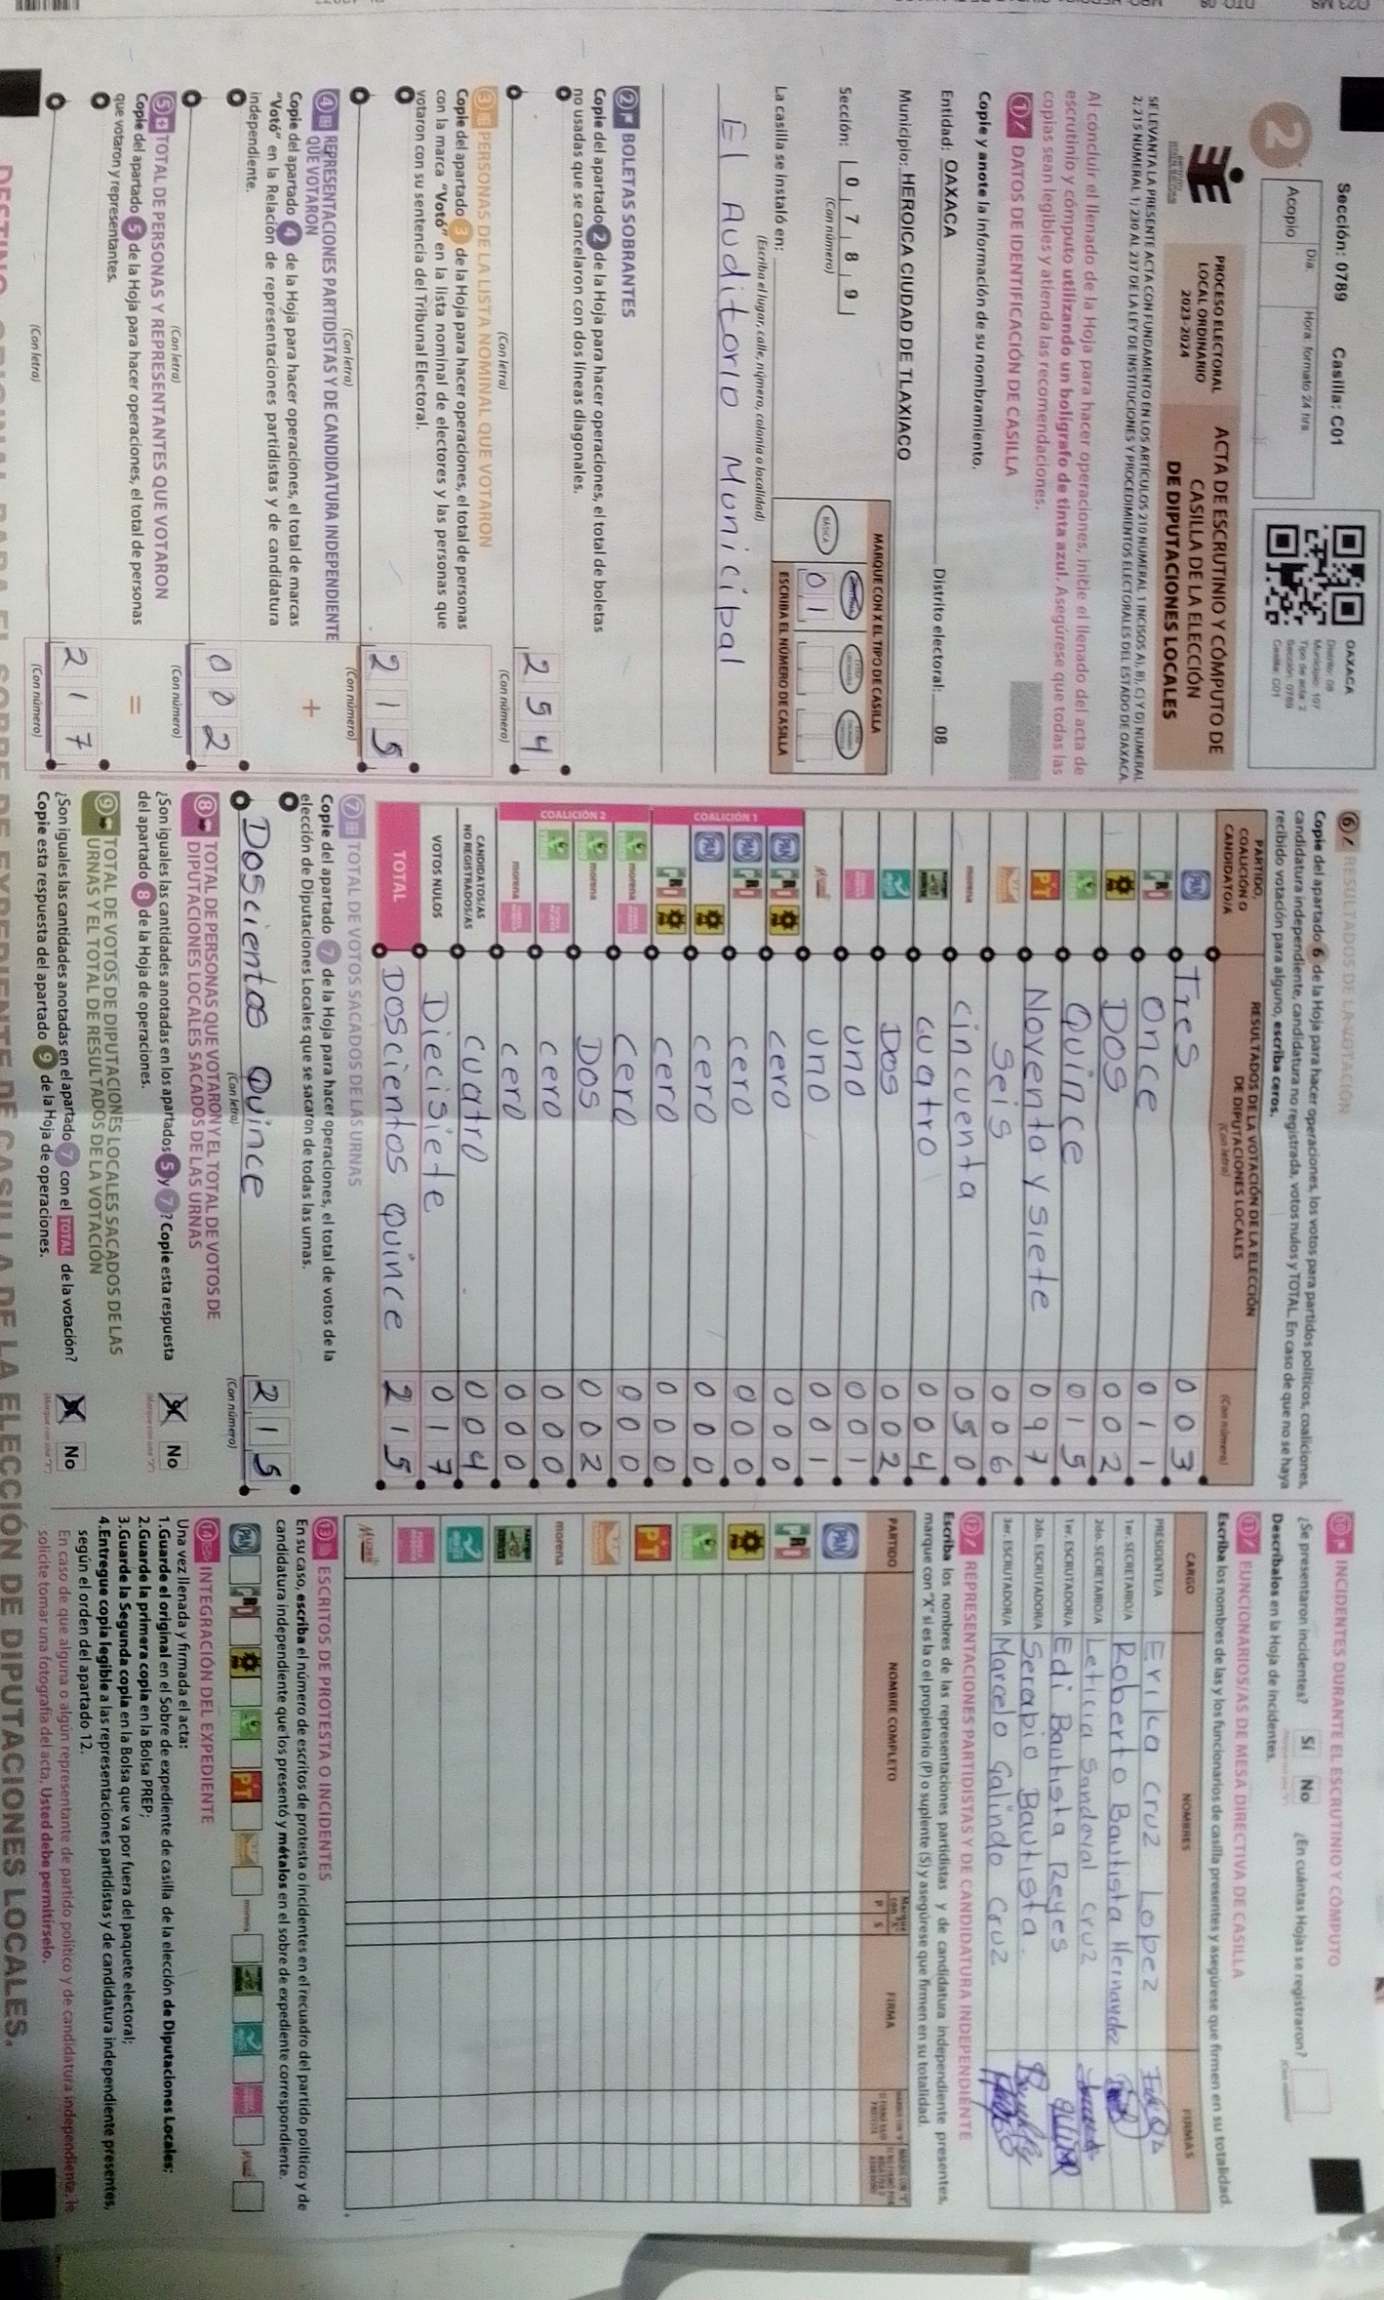 Sección: 0789 Casilla: C01
Día: Hora: formato 24 hrs
Acopio
2
OAXACA
Distrito: 08
Municipio: 107
Tipo de acta: 2
Sección: 0789
Casilla: C01
PROCESO ELECTORAL
LOCAL ORDINARIO
2023-2024
ACTA DE ESCRUTINIO Y CÓMPUTO DE
CASILLA DE LA ELECCIÓN
DE DIPUTACIONES LOCALES
SE LEVANTA LA PRESENTE ACTA CON FUNDAMENTO EN LOS ARTÍCULOS 210 NUMERAL 1 INCISOS A), B), C) Y D) NUMERAL
2; 215 NUMERAL 1; 230 AL 237 DE LA LEY DE INSTITUCIONES Y PROCEDIMIENTOS ELECTORALES DEL ESTADO DE OAXACA.
Al concluir el llenado de la Hoja para hacer operaciones, inicie el llenado del acta de
escrutinio y cómputo utilizando un bolígrafo de tinta azul. Asegúrese que todas las
copias sean legibles y atienda las recomendaciones.
1 DATOS DE IDENTIFICACIÓN DE CASILLA
Copie y anote la información de su nombramiento.
Entidad: OAXACA Distrito electoral: 08
Municipio: HEROICA CIUDAD DE TLAXIACO
Sección: 0 7 8 9
(Con número)
MARQUE CON X EL TIPO DE CASILLA
BÁSICA
0 1
ESCRIBA EL NÚMERO DE CASILLA
La casilla se instaló en:
(Escriba el lugar, calle, número, colonia o localidad)
El Auditorio Municipal
2 BOLETAS SOBRANTES
Copie del apartado 2 de la Hoja para hacer operaciones, el total de boletas
no usadas que se cancelaron con dos líneas diagonales.
2 5 4
(Con letra) (Con número)
3 PERSONAS DE LA LISTA NOMINAL QUE VOTARON
Copie del apartado 3 de la Hoja para hacer operaciones, el total de personas
con la marca "Votó" en la lista nominal de electores y las personas que
votaron con su sentencia del Tribunal Electoral.
2 1 5
(Con letra) (Con número)
4 REPRESENTACIONES PARTIDISTAS Y DE CANDIDATURA INDEPENDIENTE
QUE VOTARON
+
Copie del apartado 4 de la Hoja para hacer operaciones, el total de marcas
"Votó" en la Relación de representaciones partidistas y de candidatura
independiente.
0 0 2
(Con letra) (Con número)
5 TOTAL DE PERSONAS Y REPRESENTANTES QUE VOTARON
=
Copie del apartado 5 de la Hoja para hacer operaciones, el total de personas
que votaron y representantes.
2 1 7
(Con letra) (Con número)
6 RESULTADOS DE LA VOTACIÓN
Copie del apartado 6 de la Hoja para hacer operaciones, los votos para partidos políticos, coaliciones,
candidatura independiente, candidatura no registrada, votos nulos y TOTAL. En caso de que no se haya
recibido votación para alguno, escriba ceros.
PARTIDO,
COALICIÓN O
CANDIDATO/A
RESULTADOS DE LA VOTACIÓN DE LA ELECCIÓN
DE DIPUTACIONES LOCALES
(Con letra) (Con número)
PAN Tres 0 0 3
PRI Once 0 1 1
Dos 0 0 2
Quince 0 1 5
PT Noventa y siete 0 9 7
Seis 0 0 6
morena cincuenta 0 5 0
cuatro 0 0 4
Dos 0 0 2
uno 0 0 1
uno 0 0 1
COALICIÓN 1
PAN PRI cero 0 0 0
PAN PRI cero 0 0 0
PAN cero 0 0 0
PRI cero 0 0 0
COALICIÓN 2
morena cero 0 0 0
morena Dos 0 0 2
cero 0 0 0
morena cero 0 0 0
CANDIDATOS/AS
NO REGISTRADOS/AS cuatro 0 0 4
VOTOS NULOS Diecisiete 0 1 7
TOTAL Doscientos quince 2 1 5
7 TOTAL DE VOTOS SACADOS DE LAS URNAS
Copie del apartado 7 de la Hoja para hacer operaciones, el total de votos de la
elección de Diputaciones Locales que se sacaron de todas las urnas.
Doscientos Quince 2 1 5
(Con letra) (Con número)
8 TOTAL DE PERSONAS QUE VOTARON Y EL TOTAL DE VOTOS DE
DIPUTACIONES LOCALES SACADOS DE LAS URNAS
¿Son iguales las cantidades anotadas en los apartados 5 y 7? Copie esta respuesta
del apartado 8 de la Hoja de operaciones.
No
9 TOTAL DE VOTOS DE DIPUTACIONES LOCALES SACADOS DE LAS
URNAS Y EL TOTAL DE RESULTADOS DE LA VOTACIÓN
¿Son iguales las cantidades anotadas en el apartado 7 con el TOTAL de la votación?
Copie esta respuesta del apartado 9 de la Hoja de operaciones.
No
10 INCIDENTES DURANTE EL ESCRUTINIO Y CÓMPUTO
¿Se presentaron incidentes? Sí No ¿En cuántas Hojas se registraron?
Descríbalos en la Hoja de incidentes.
11 FUNCIONARIOS/AS DE MESA DIRECTIVA DE CASILLA
Escriba los nombres de las y los funcionarios de casilla presentes y asegúrese que firmen en su totalidad.
CARGO NOMBRES FIRMAS
PRESIDENTE/A Erika Cruz Lopez
1er. SECRETARIO/A Roberto Bautista Hernandez
2do. SECRETARIO/A Leticia Sandoval cruz
1er. ESCRUTADOR/A Edi Bautista Reyes
2do. ESCRUTADOR/A Serapio Bautista.
3er. ESCRUTADOR/A Marcelo Galindo Cruz
12 REPRESENTACIONES PARTIDISTAS Y DE CANDIDATURA INDEPENDIENTE
Escriba los nombres de las representaciones partidistas y de candidatura independiente presentes,
marque con "X" si es la o el propietario (P) o suplente (S) y asegúrese que firmen en su totalidad.
PARTIDO NOMBRE COMPLETO P S FIRMA
PAN
PRI
PT
morena
13 ESCRITOS DE PROTESTA O INCIDENTES
En su caso, escriba el número de escritos de protesta o incidentes en el recuadro del partido político y de
candidatura independiente que los presentó y métalos en el sobre de expediente correspondiente.
PAN PRI PT morena
14 INTEGRACIÓN DEL EXPEDIENTE
Una vez llenada y firmada el acta:
1.Guarde el original en el Sobre de expediente de casilla de la elección de Diputaciones Locales;
2.Guarde la primera copia en la Bolsa PREP;
3.Guarde la Segunda copia en la Bolsa que va por fuera del paquete electoral;
4.Entregue copia legible a las representaciones partidistas y de candidatura independiente presentes,
según el orden del apartado 12.
En caso de que alguna o algún representante de partido político y de candidatura independiente, le
solicite tomar una fotografía del acta, Usted debe permitírselo.
DESTINO: ORIGINAL PARA EL SOBRE DE EXPEDIENTE DE CASILLA DE LA ELECCIÓN DE DIPUTACIONES LOCALES.